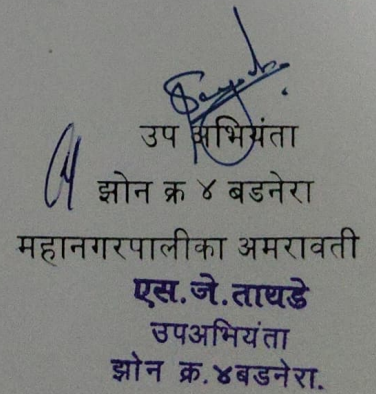 उप अभियंता
झोन क्र ४ बडनेरा
महानगरपालीका अमरावती
एस.जे.तायडे
उपअभियंता
झोन क्र.४बडनेरा.